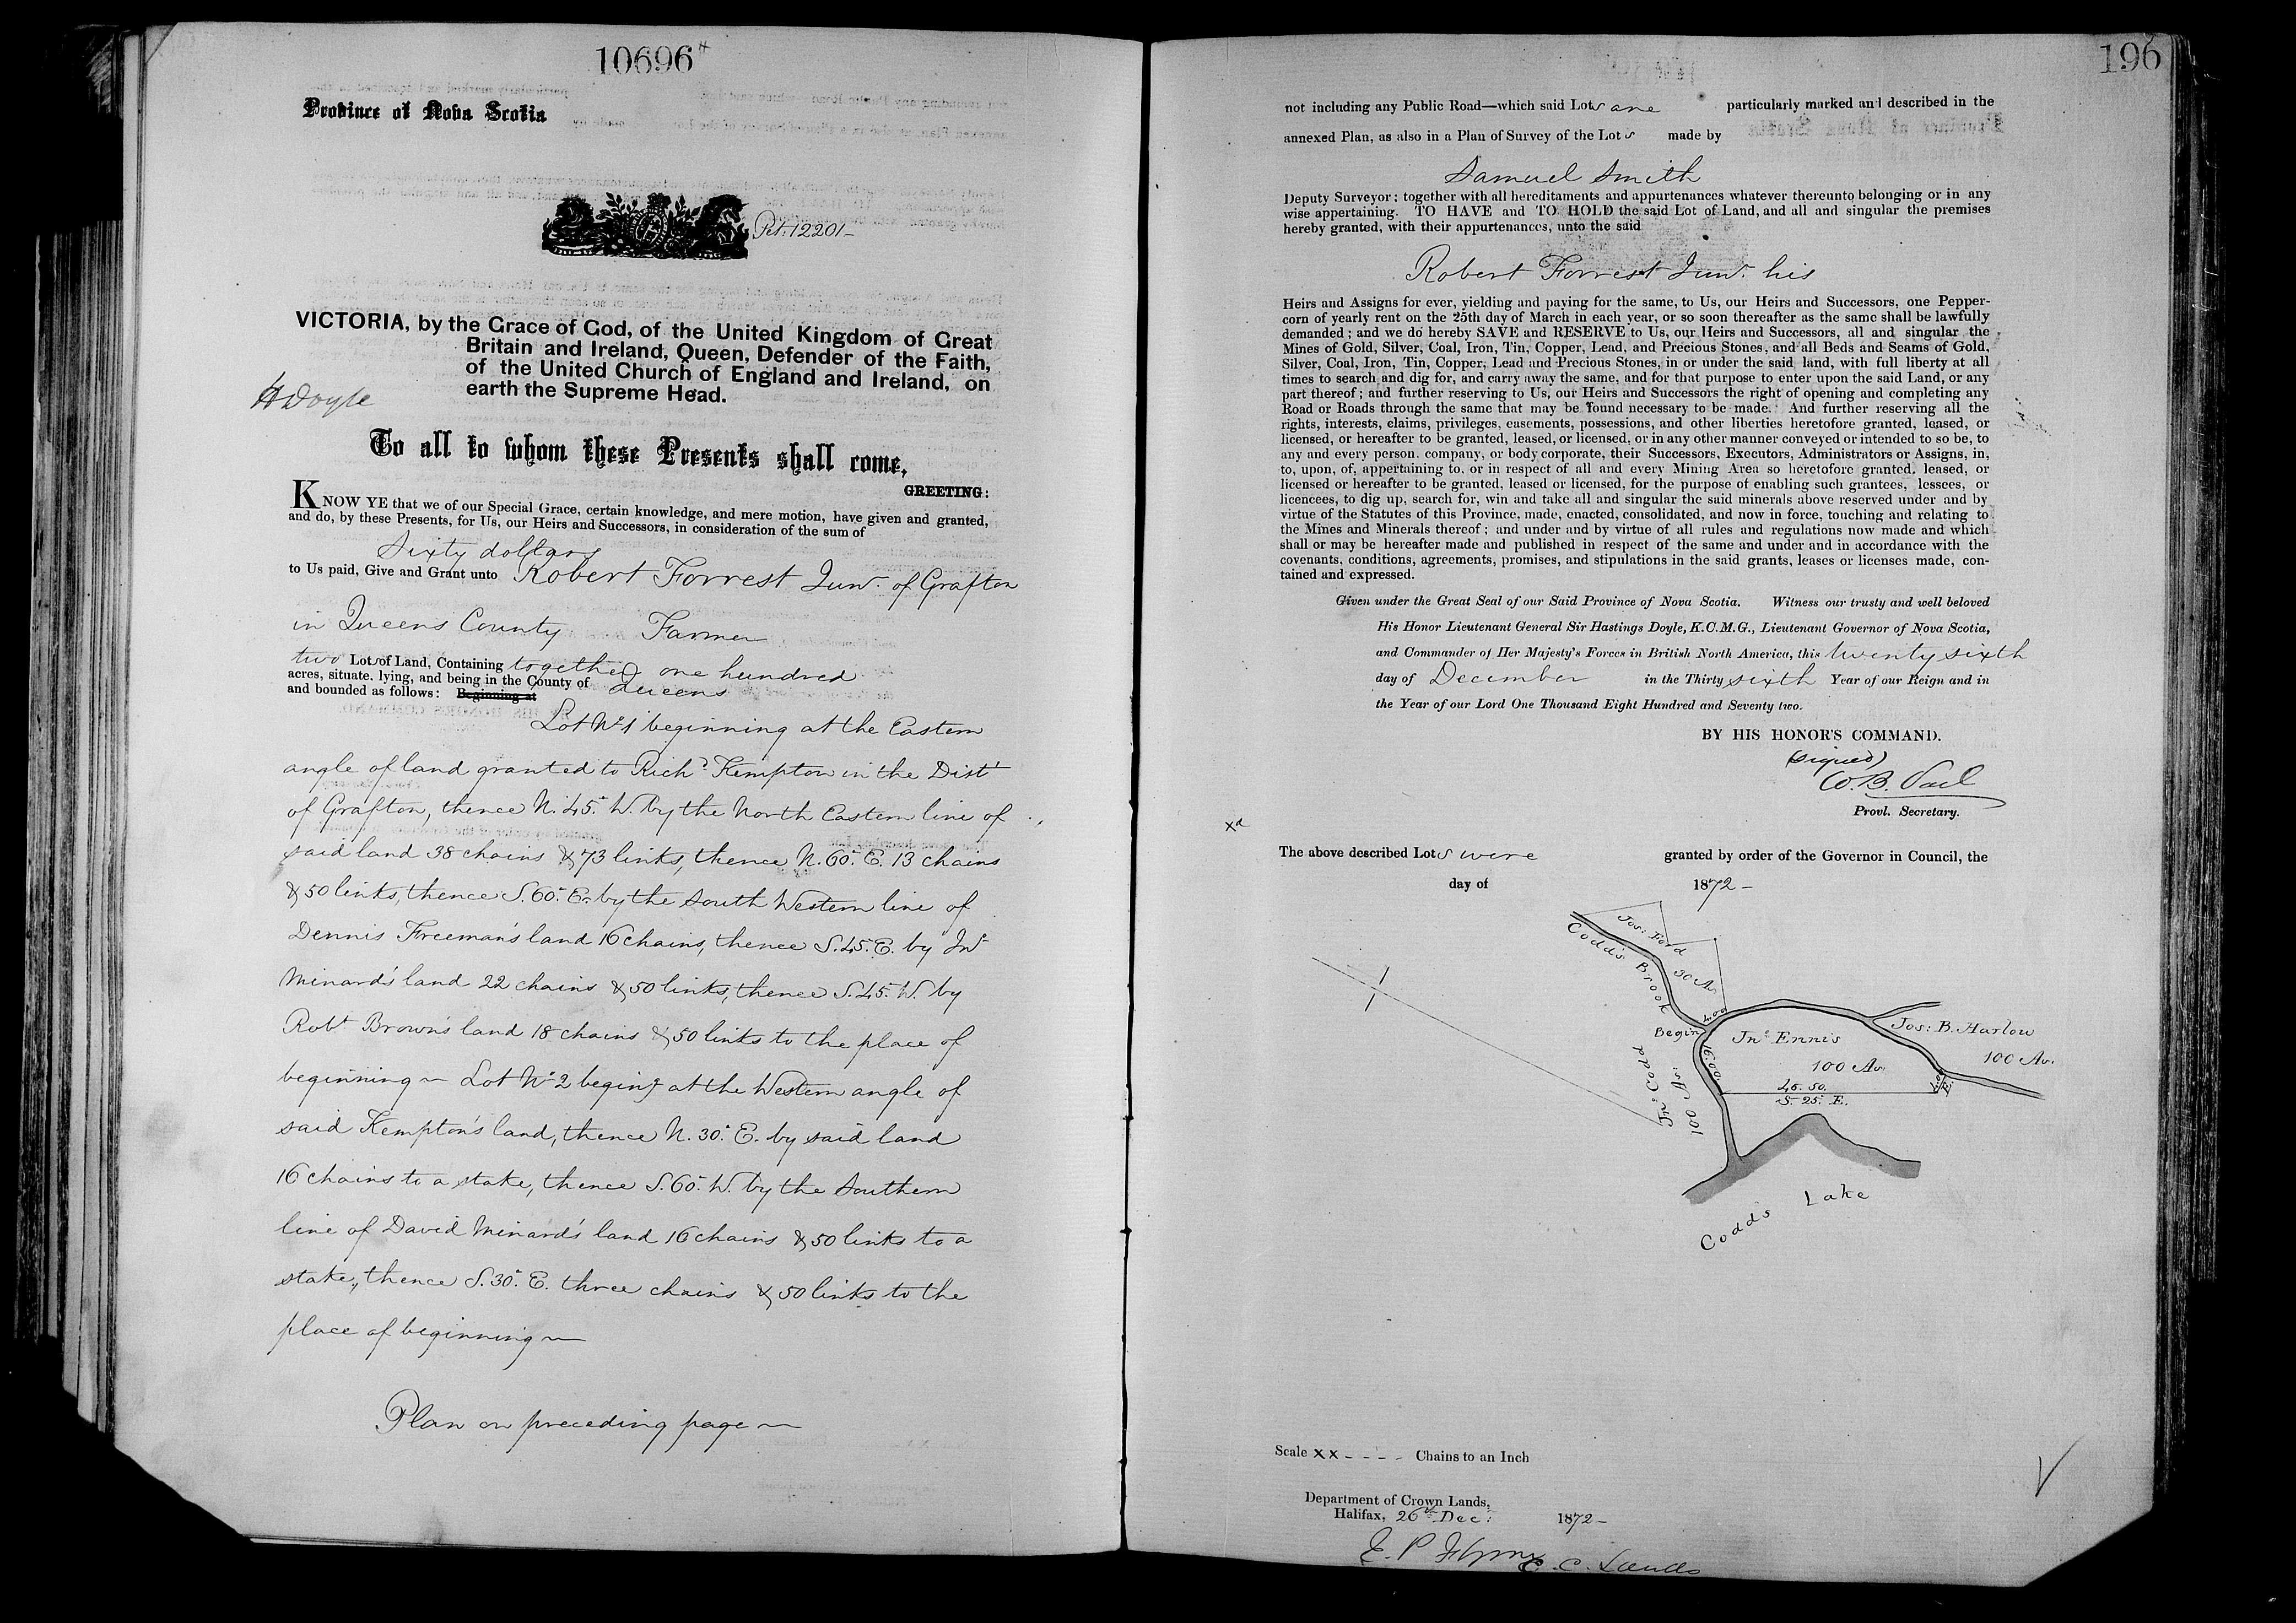 10696
Province of Nova Scotia
Pet. 12201-
VICTORIA, by the Grace of God, of the United Kingdom of Great
Britain and Ireland, Queen, Defender of the Faith,
of the United Church of England and Ireland, on
earth the Supreme Head.
H Doyle
To all to whom these Presents shall come,
GREETING:
KNOW YE that we of our Special Grace, certain knowledge, and mere motion, have given and granted,
and do, by these Presents, for Us, our Heirs and Successors, in consideration of the sum of
Sixty dollars
to Us paid, Give and Grant unto Robert Forrest Junr. of Grafton
in Queens County Farmer
two Lots of Land, Containing together one hundred
acres, situate, lying, and being in the County of Queens
and bounded as follows: Beginning at
Lot No 1 beginning at the Eastern
angle of land granted to Richd Kempton in the Dist
of Grafton, thence N. 45° W. by the North Eastern line of
said land 38 chains & 73 links, thence N. 60° E. 13 chains
& 50 links, thence S. 60° E. by the South Western line of
Dennis Freeman's land 16 chains, thence S. 45° E. by Jno
Minard's land 22 chains & 50 links, thence S. 45° W. by
Robt Brown's land 18 chains & 50 links to the place of
beginning — Lot No 2 beging at the Western angle of
said Kempton's land, thence N. 30° E. by said land
16 chains to a stake, thence S. 60° W. by the Southern
line of David Minard's land 16 chains & 50 links to a
stake, thence S. 30° E. three chains & 50 links to the
place of beginning —
Plan on preceding page —
196
not including any Public Road—which said Lots are particularly marked and described in the
annexed Plan, as also in a Plan of Survey of the Lots made by
Samuel Smith
Deputy Surveyor; together with all hereditaments and appurtenances whatever thereunto belonging or in any
wise appertaining. TO HAVE and TO HOLD the said Lot of Land, and all and singular the premises
hereby granted, with their appurtenances, unto the said
Robert Forrest Junr. his
Heirs and Assigns for ever, yielding and paying for the same, to Us, our Heirs and Successors, one Pepper-
corn of yearly rent on the 25th day of March in each year, or so soon thereafter as the same shall be lawfully
demanded; and we do hereby SAVE and RESERVE to Us, our Heirs and Successors, all and singular the
Mines of Gold, Silver, Coal, Iron, Tin, Copper, Lead, and Precious Stones, and all Beds and Seams of Gold,
Silver, Coal, Iron, Tin, Copper, Lead and Precious Stones, in or under the said land, with full liberty at all
times to search and dig for, and carry away the same, and for that purpose to enter upon the said Land, or any
part thereof; and further reserving to Us, our Heirs and Successors the right of opening and completing any
Road or Roads through the same that may be found necessary to be made. And further reserving all the
rights, interests, claims, privileges, easements, possessions, and other liberties heretofore granted, leased, or
licensed, or hereafter to be granted, leased, or licensed, or in any other manner conveyed or intended to so be, to
any and every person, company, or body corporate, their Successors, Executors, Administrators or Assigns, in,
to, upon, of, appertaining to, or in respect of all and every Mining Area so heretofore granted, leased, or
licensed or hereafter to be granted, leased or licensed, for the purpose of enabling such grantees, lessees, or
licencees, to dig up, search for, win and take all and singular the said minerals above reserved under and by
virtue of the Statutes of this Province, made, enacted, consolidated, and now in force, touching and relating to
the Mines and Minerals thereof; and under and by virtue of all rules and regulations now made and which
shall or may be hereafter made and published in respect of the same and under and in accordance with the
covenants, conditions, agreements, promises, and stipulations in the said grants, leases or licenses made, con-
tained and expressed.
Given under the Great Seal of our Said Province of Nova Scotia. Witness our trusty and well beloved
His Honor Lieutenant General Sir Hastings Doyle, K.C.M.G., Lieutenant Governor of Nova Scotia,
and Commander of Her Majesty's Forces in British North America, this twenty sixth
day of December in the Thirty sixth Year of our Reign and in
the Year of our Lord One Thousand Eight Hundred and Seventy two.
BY HIS HONOR'S COMMAND.
(signed)
W. B. Vail
Provl. Secretary.
xd
The above described Lots were granted by order of the Governor in Council, the
day of 1872-
Jos: Ford
30 Ac
Codd's Brook
Begin
4.00
16.00
Jno Ennis
100 Ac.
Jos: B. Harlow
100 Ac.
Jno Codd
100 Ac.
46.50.
S. 25° E.
Codds Lake
Scale XX - - - - Chains to an Inch
Department of Crown Lands,
Halifax, 26th Dec: 1872-